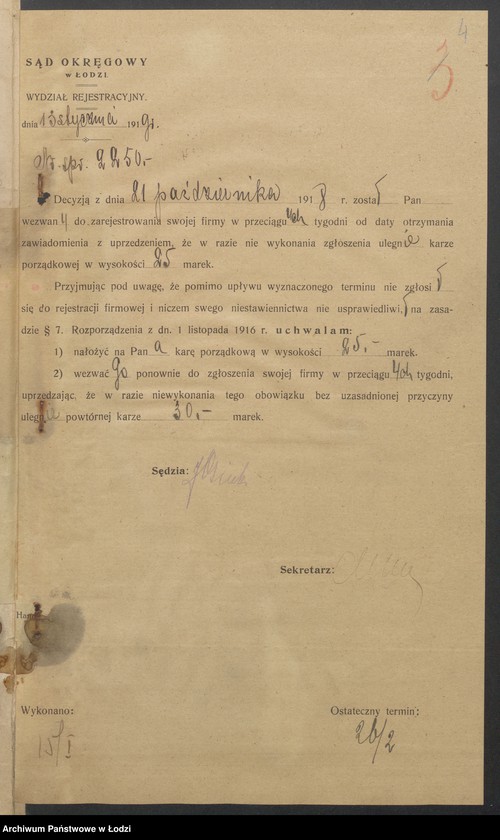 4
3
SĄD OKRĘGOWY
w ŁODZI.
WYDZIAŁ REJESTRACYJNY.
dnia 13 stycznia 1919 r.
Nr. spr. 2250.-
Decyzją z dnia 21 października 1918 r. został Pan
wezwany do zarejestrowania swojej firmy w przeciągu 4ch tygodni od daty otrzymania
zawiadomienia z uprzedzeniem, że w razie nie wykonania zgłoszenia ulegnie karze
porządkowej w wysokości 25 marek.
Przyjmując pod uwagę, że pomimo upływu wyznaczonego terminu nie zgłosił
się do rejestracji firmowej i niczem swego niestawiennictwa nie usprawiedliwił, na zasa-
dzie § 7. Rozporządzenia z dn. 1 listopada 1916 r. uchwalam:
1) nałożyć na Pana karę porządkową w wysokości 25.- marek.
2) wezwać Go ponownie do zgłoszenia swojej firmy w przeciągu 4ch tygodni,
uprzedzając, że w razie niewykonania tego obowiązku bez uzasadnionej przyczyny
ulegnie powtórnej karze 30.- marek.
Sędzia:
Sekretarz:
Wykonano:
15/I
Ostateczny termin:
26/2
Archiwum Państwowe w Łodzi